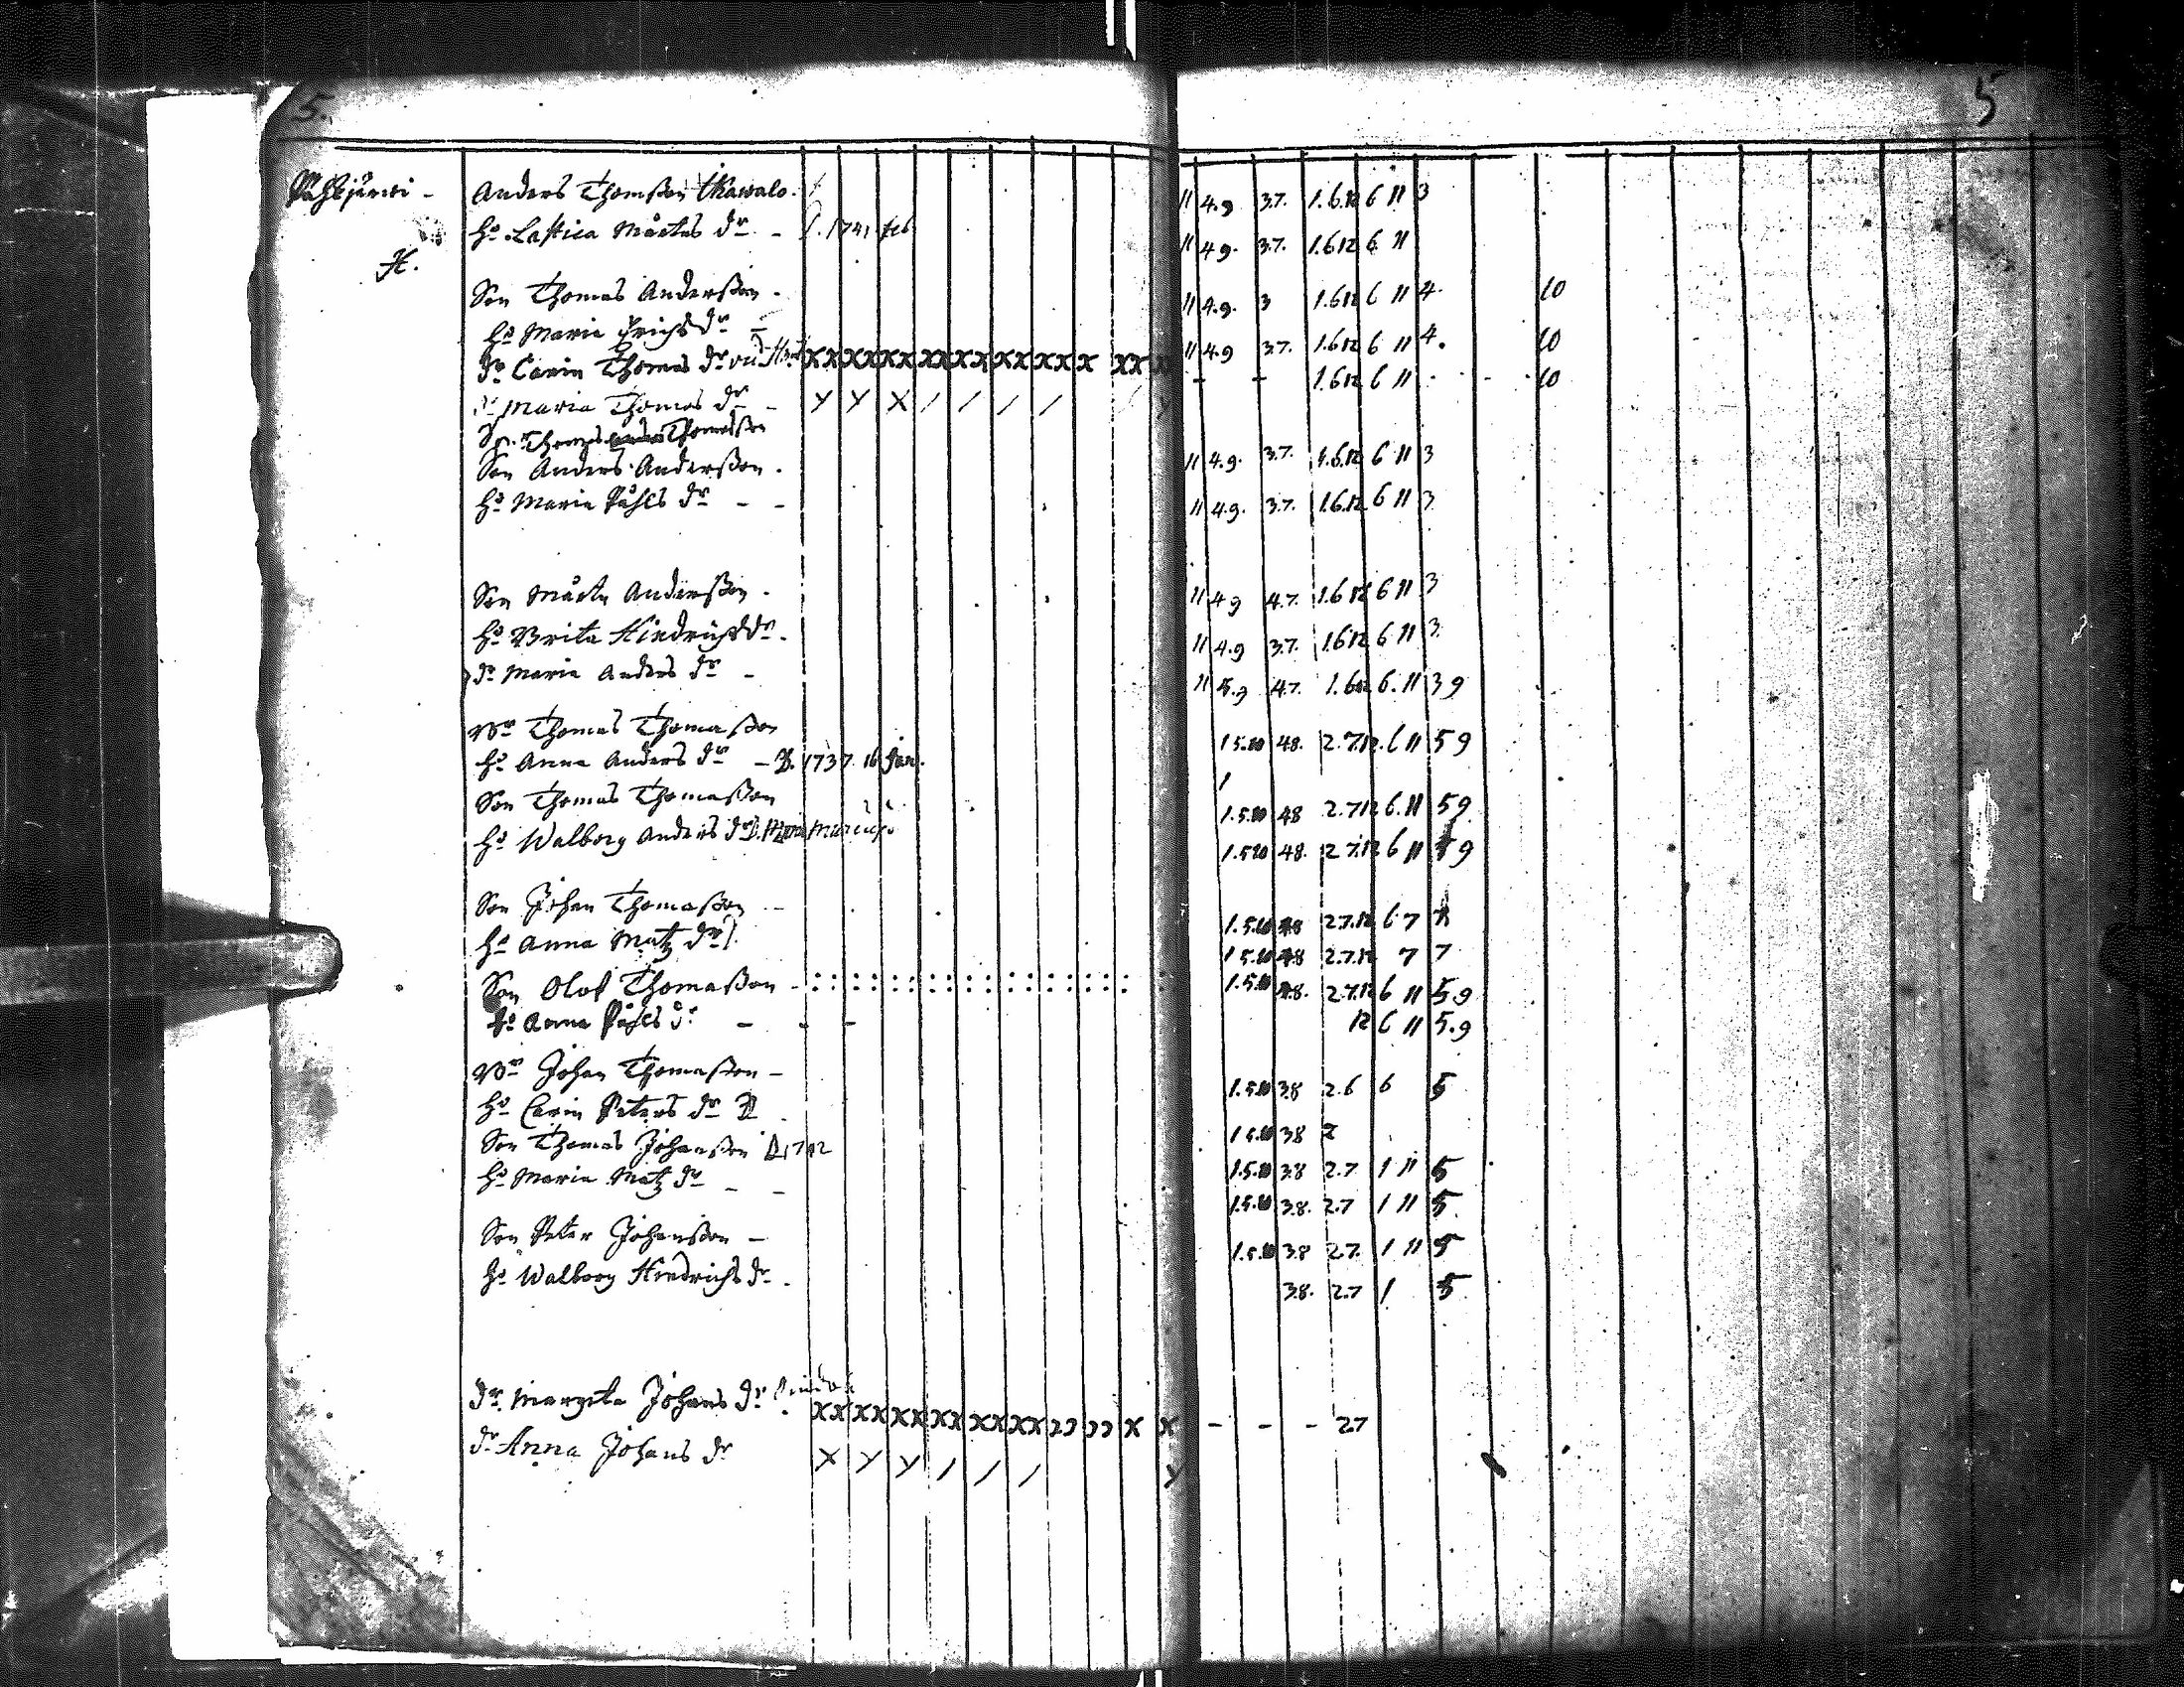 5. 5
Påhljärwi - Anders Thomßon Ukawalo. 11 4.9 3.7. 1.6.12 6 11 3
H:o Lastica Mårtens d:r - 1741 feb 11 4.9. 3.7. 1.6 12 6 11
H.
Son Thomas Anderßon. 11 4.9. 3 1.6 12 6 11 4. 10
H:o Maria Erichs d:r - 11 4.9 3.7. 1.6 12 6 11 4. 10
d:r Carin Thomas d:r XX XX XX XX XX XX XX X XX - - 1.6 12 6 11 - - 10
d:r Maria Thomas d:r - Y Y X / / / / Y
Son Thomas Thomasßon
Son Anders Anderßon. 11 4.9. 3.7. 1.6.12 6 11 3
H:o Maria Påhls d:r - - 11 4.9. 3.7. 1.6.12 6 11 3
Son Mårten Anderßon. 11 4 9 4.7. 1.6 12 6 11 3
H:o Brita Hindrichs d:r. 11 4.9 3.7. 1.6 12 6 11 3
d:r Maria Anders d:r - 11 5.9 4.7. 1.6 12 6. 11 3 9
Br Thomas Thomaßon 1 5.10 48. 2.7.12. 6 11 5 9
H:o Anna Anders d:r - D. 1737. 16 Jan. 1
Son Thomas Thomaßon 1.5.10 48 2.7 12 6. 11 5 9
H:o Walborg Anders d:r 1.5 10 48. 2 7.12 6 11 9
Son Johan Thomaßon - 1.5.10 48 2.7.12 6 7
H:o Anna Matz d:r 1 5.10 48 2.7.12 7 7
Son Olof Thomaßon - : : : : : : : : : : : : : : : : 1.5.10 48. 2.7.12 6 11 5 9
H:o Anna Påhls d:r - - - 12 6 11 5.9
Br Johan Thomaßon - 1.5.10 38 2.6 6 5
H:o Carin Peters d:r D 1 5.10 38 2
Son Thomas Johanßon D 1742 1.5.10 38 2.7 1 11 5
H:o Maria Matz d:r - - 1.5.10 3.8. 2.7 1 11 5
Son Peter Johanßon - 1.5.10 3.8 2.7. 1 11 5
H:o Walborg Hindrichs d:r. 3.8. 2.7 1 5
d:r Margeta Johans d:r XX XX XX XX XX XX X X - - - 2.7
d:r Anna Johans d:r X Y Y / / / Y